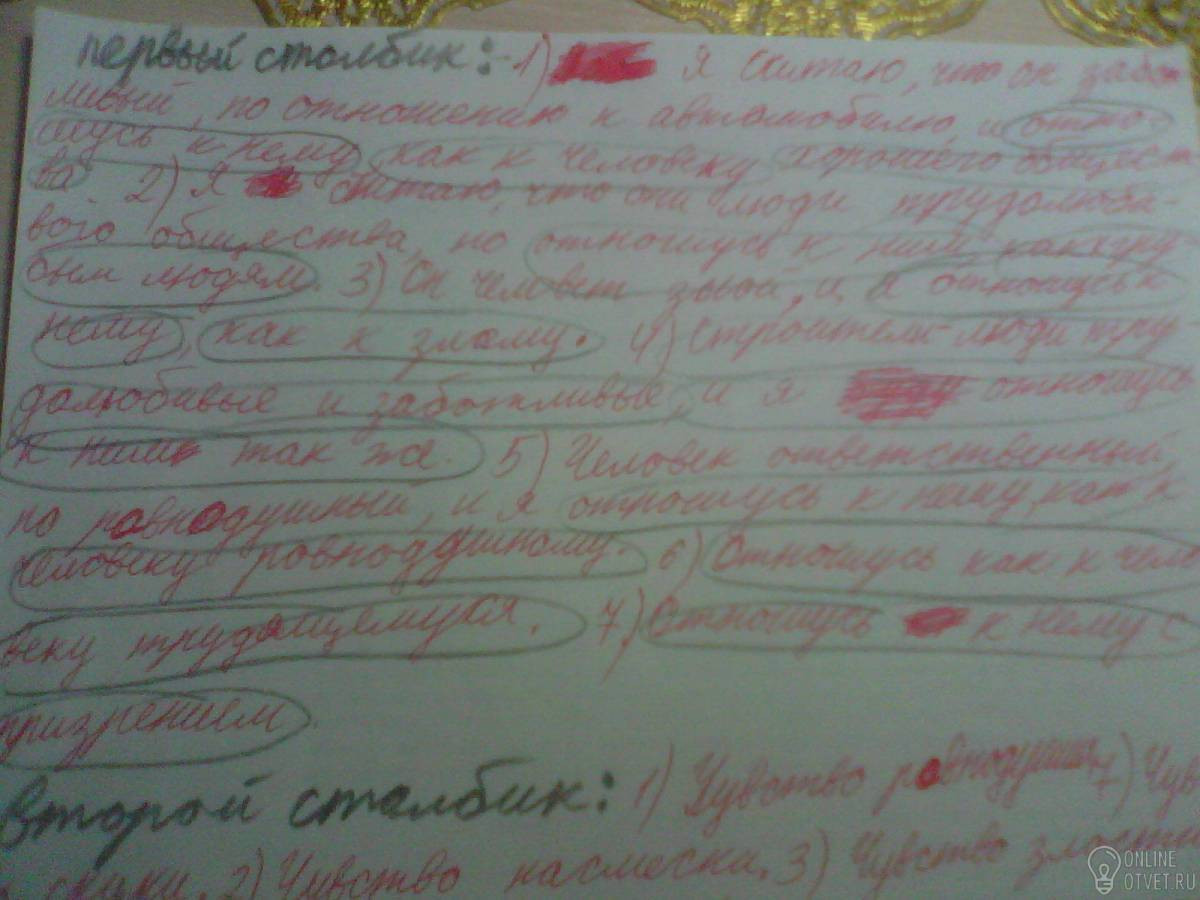 первый столбик: 1) Я считаю, что он забот
ливый, по отношению к автомобилю, и отно-
шусь к нему, как к человеку хорошего общест
ва 2) Я считаю, что они люди трудолюби-
вого общества, но отношусь к ним, как к гру-
бым людям. 3) Он человек злой, и я отношусь к
нему, как к злому. 4) Строители люди тру
долюбивые и заботливые, и я отношусь
к ним так же. 5) Человек ответственный,
но равнодушный, и я отношусь к нему, как к
человеку равнодушному. 6) Отношусь как к чело
веку трудящемуся. 7) Отношусь к нему с
призрением.
второй столбик: 1) Чувство равнодушия 7) Чув
скуки. 2) Чувство насмески. 3) Чувство злости
ONLINE
OTVET.RU